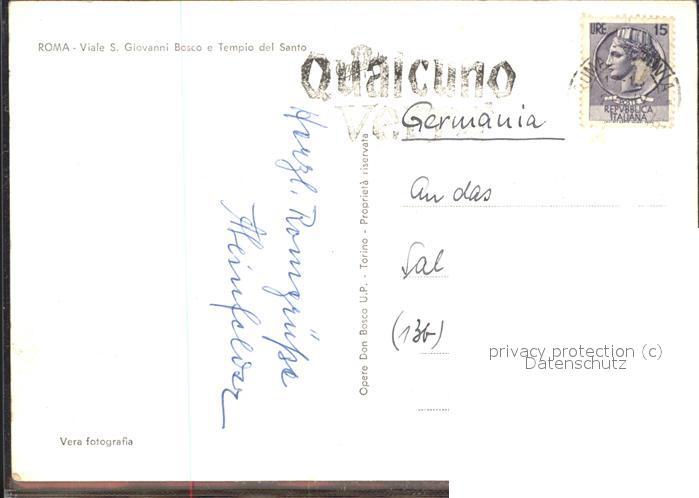 ROMA - Viale S. Giovanni Bosco e Tempio del Santo
Qualcuno
LIRE 15
REPVBBLICA
ITALIANA
Germania
An das
Sal
(13b)
Herzl. Romgrüße
Opere Don Bosco U.P. - Torino - Proprietà riservata
privacy protection (c)
Datenschutz
Vera fotografia